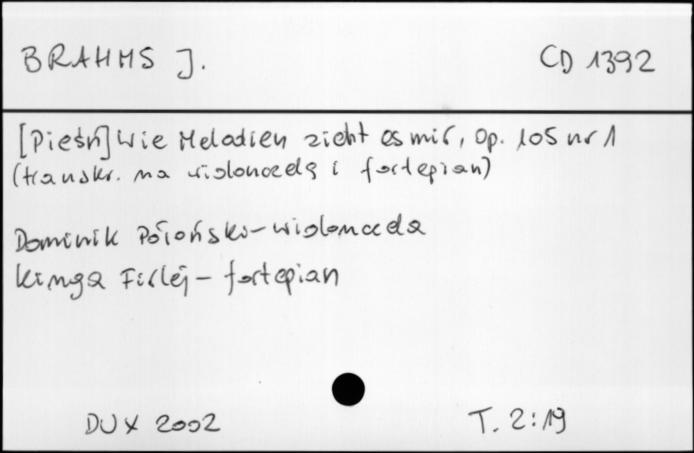 BRAHMS J. CD 1392
[Pieśń] Wie Melodien zieht es mir, Op. 105 nr 1
(transkr. na wiolonczelę i fortepian)
Dominik Połoński - wiolonczela
Kinga Firlej - fortepian
DUX 2002 T. 2:19